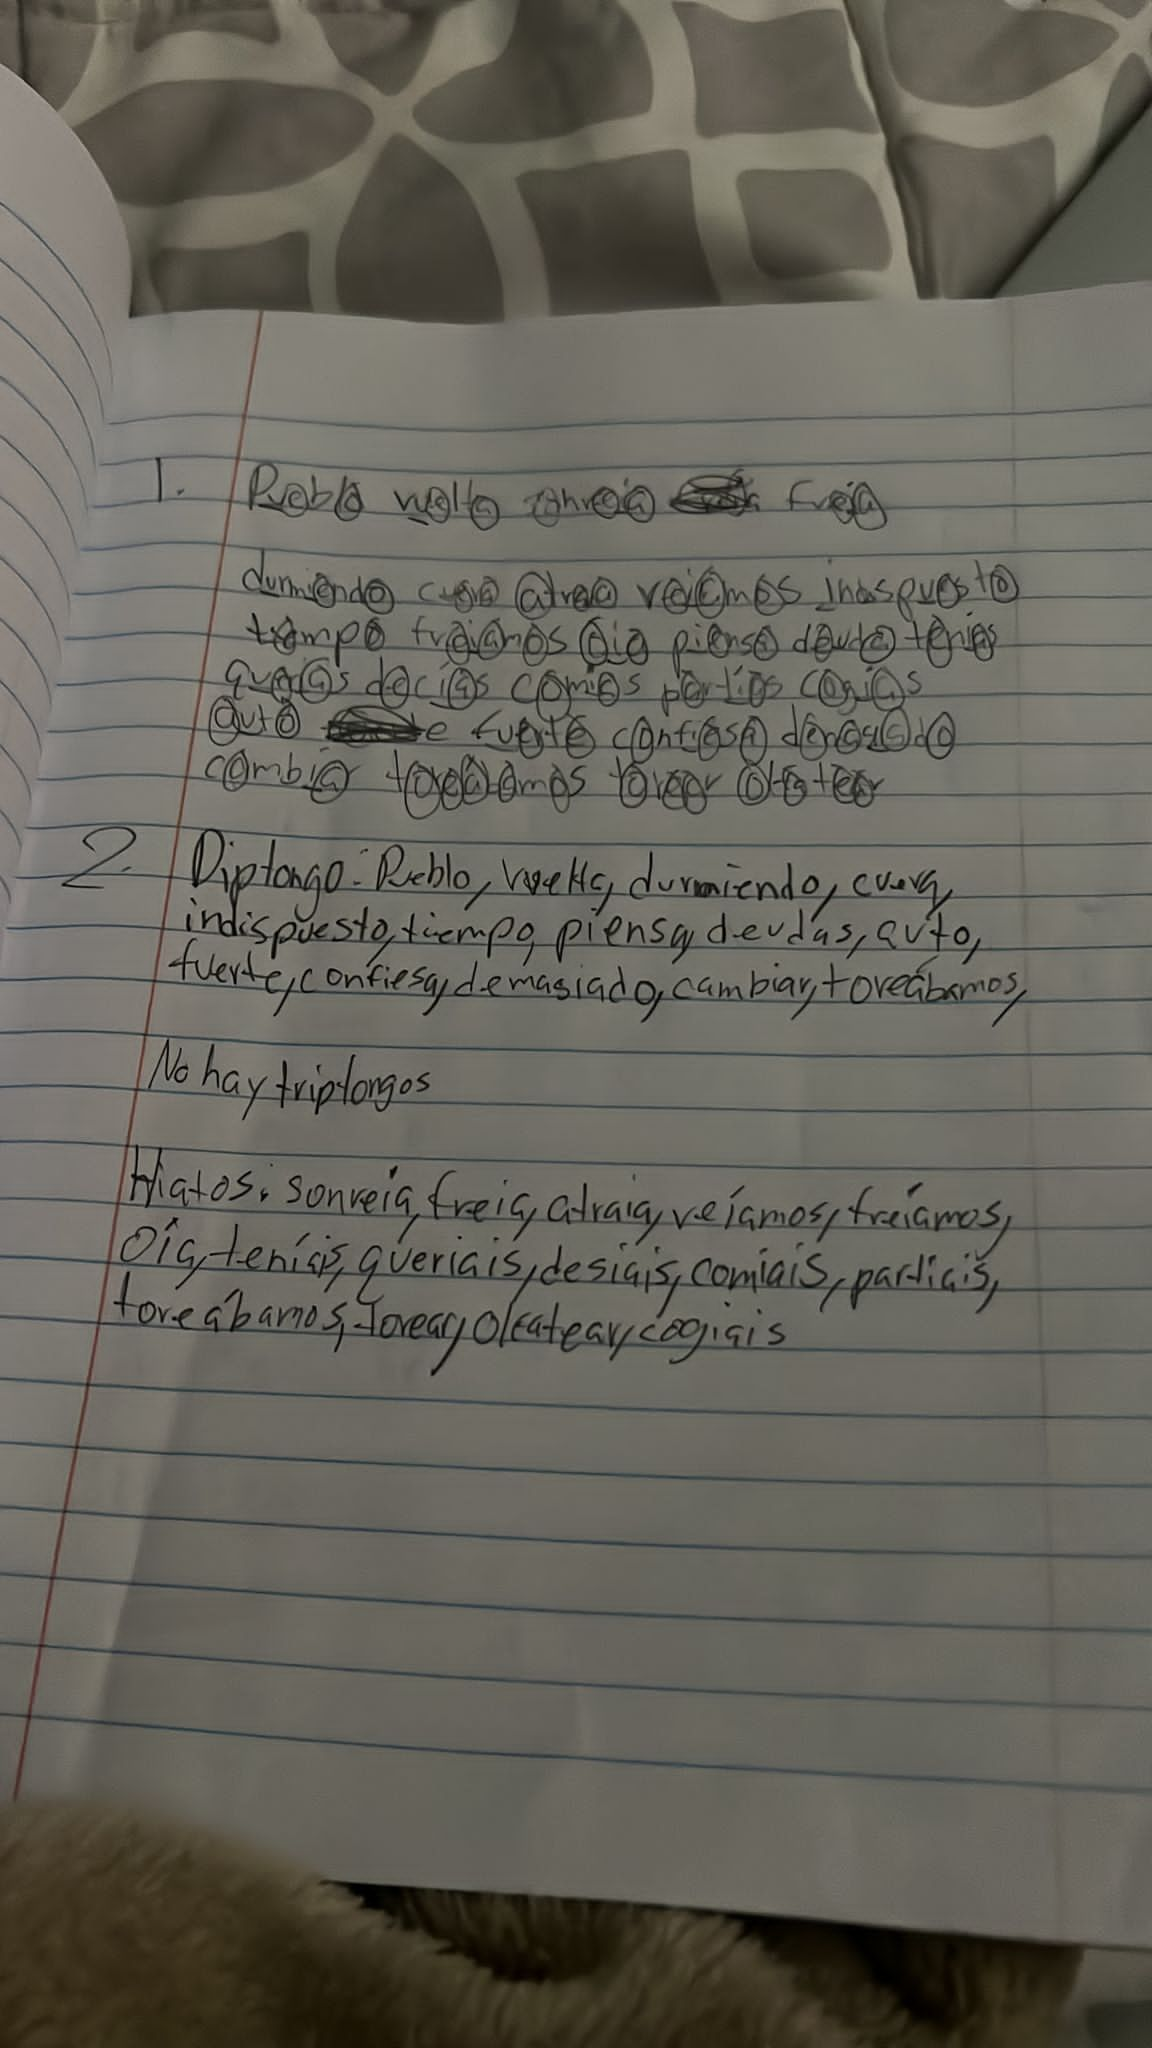 1. Pueblo vuelta sonreía freía
durmiendo cueva atraa veíamos indispuesto
tiempo freíamos oía piensa deuda teníais
queríais decíais comíais partíais cogíais
auto fuerte confiesa demasiado
cambiar toreábamos torear olfatear
2. Diptongo: Pueblo, vuelta, durmiendo, cueva,
indispuesto, tiempo, piensa, deudas, auto,
fuerte, confiesa, demasiado, cambiar, toreábamos,
No hay triptongos
Hiatos: sonreía, freía, atraía, veíamos, freíamos,
Oía, teníais, queriais, desiais, comíais, partiais,
toreábamos, torear, olfatear, cogiais